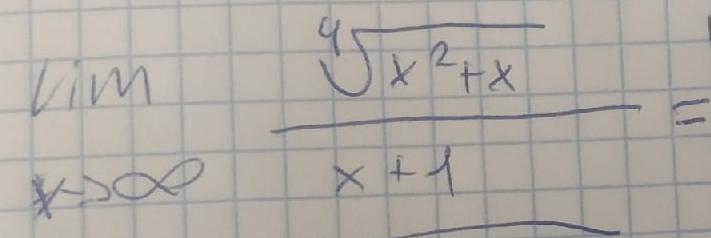 lim x→∞ ⁴√(x²+x) / (x+1) =